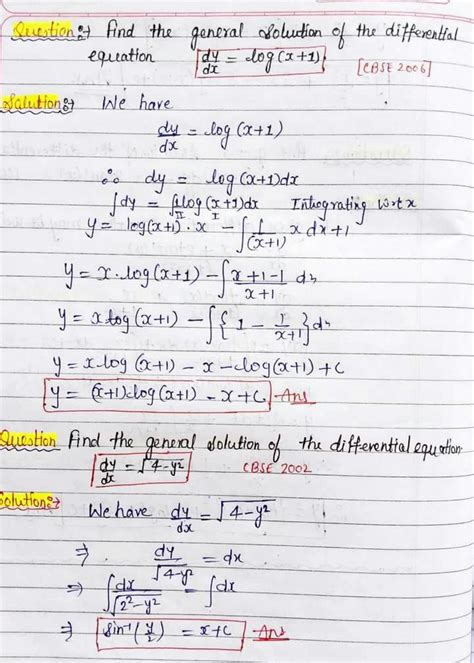 Question:→ Find the general solution of the differential
equation dy/dx = log(x+1) [CBSE 2006]
Solution:→ We have
dy/dx = log(x+1)
∴ dy = log(x+1)dx
∫dy = ∫1·log(x+1)dx Integrating w.r.t x
I II
y = log(x+1)·x - ∫ 1/(x+1) x dx+1
y = x·log(x+1) - ∫ x+1-1/x+1 dx
y = x log(x+1) - ∫{1 - 1/x+1}dx
y = x·log(x+1) - x - log(x+1)+c
y = (x+1)log(x+1) - x+c Ans
Question Find the general solution of the differential equation
dy/dx = √4-y² CBSE 2002
Solution:→ We have dy/dx = √4-y²
⇒ dy/√4-y² = dx
⇒ ∫ dx/√2²-y² = ∫dx
⇒ sin⁻¹(y/2) = x+c Ans